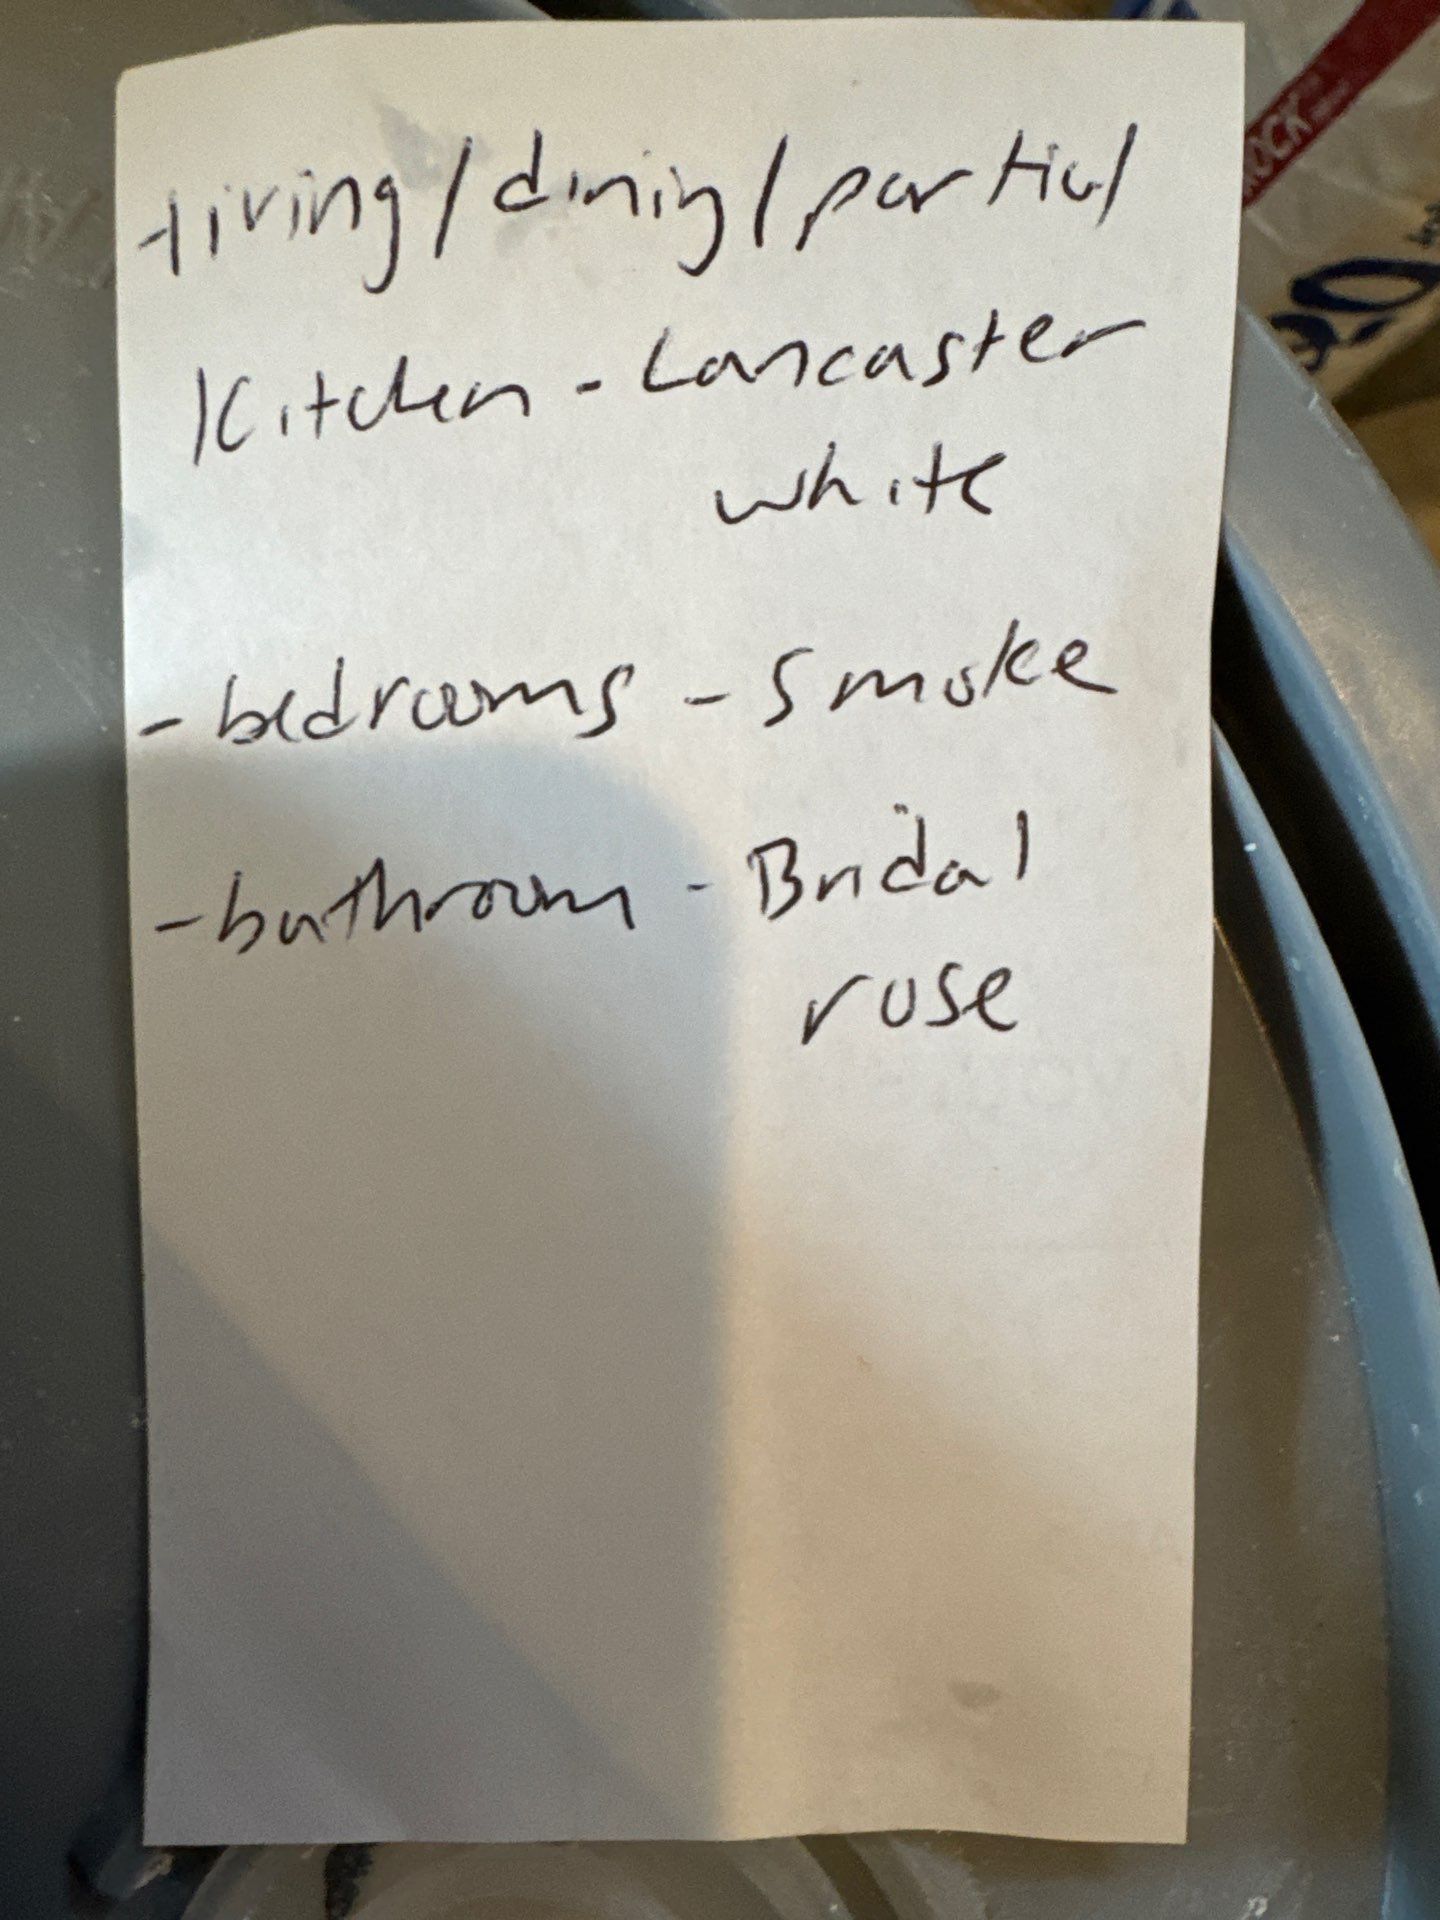 -living/dining/partial
Kitchen - Lancaster
white
- bedrooms - Smoke
- bathroom - Bridal
rose